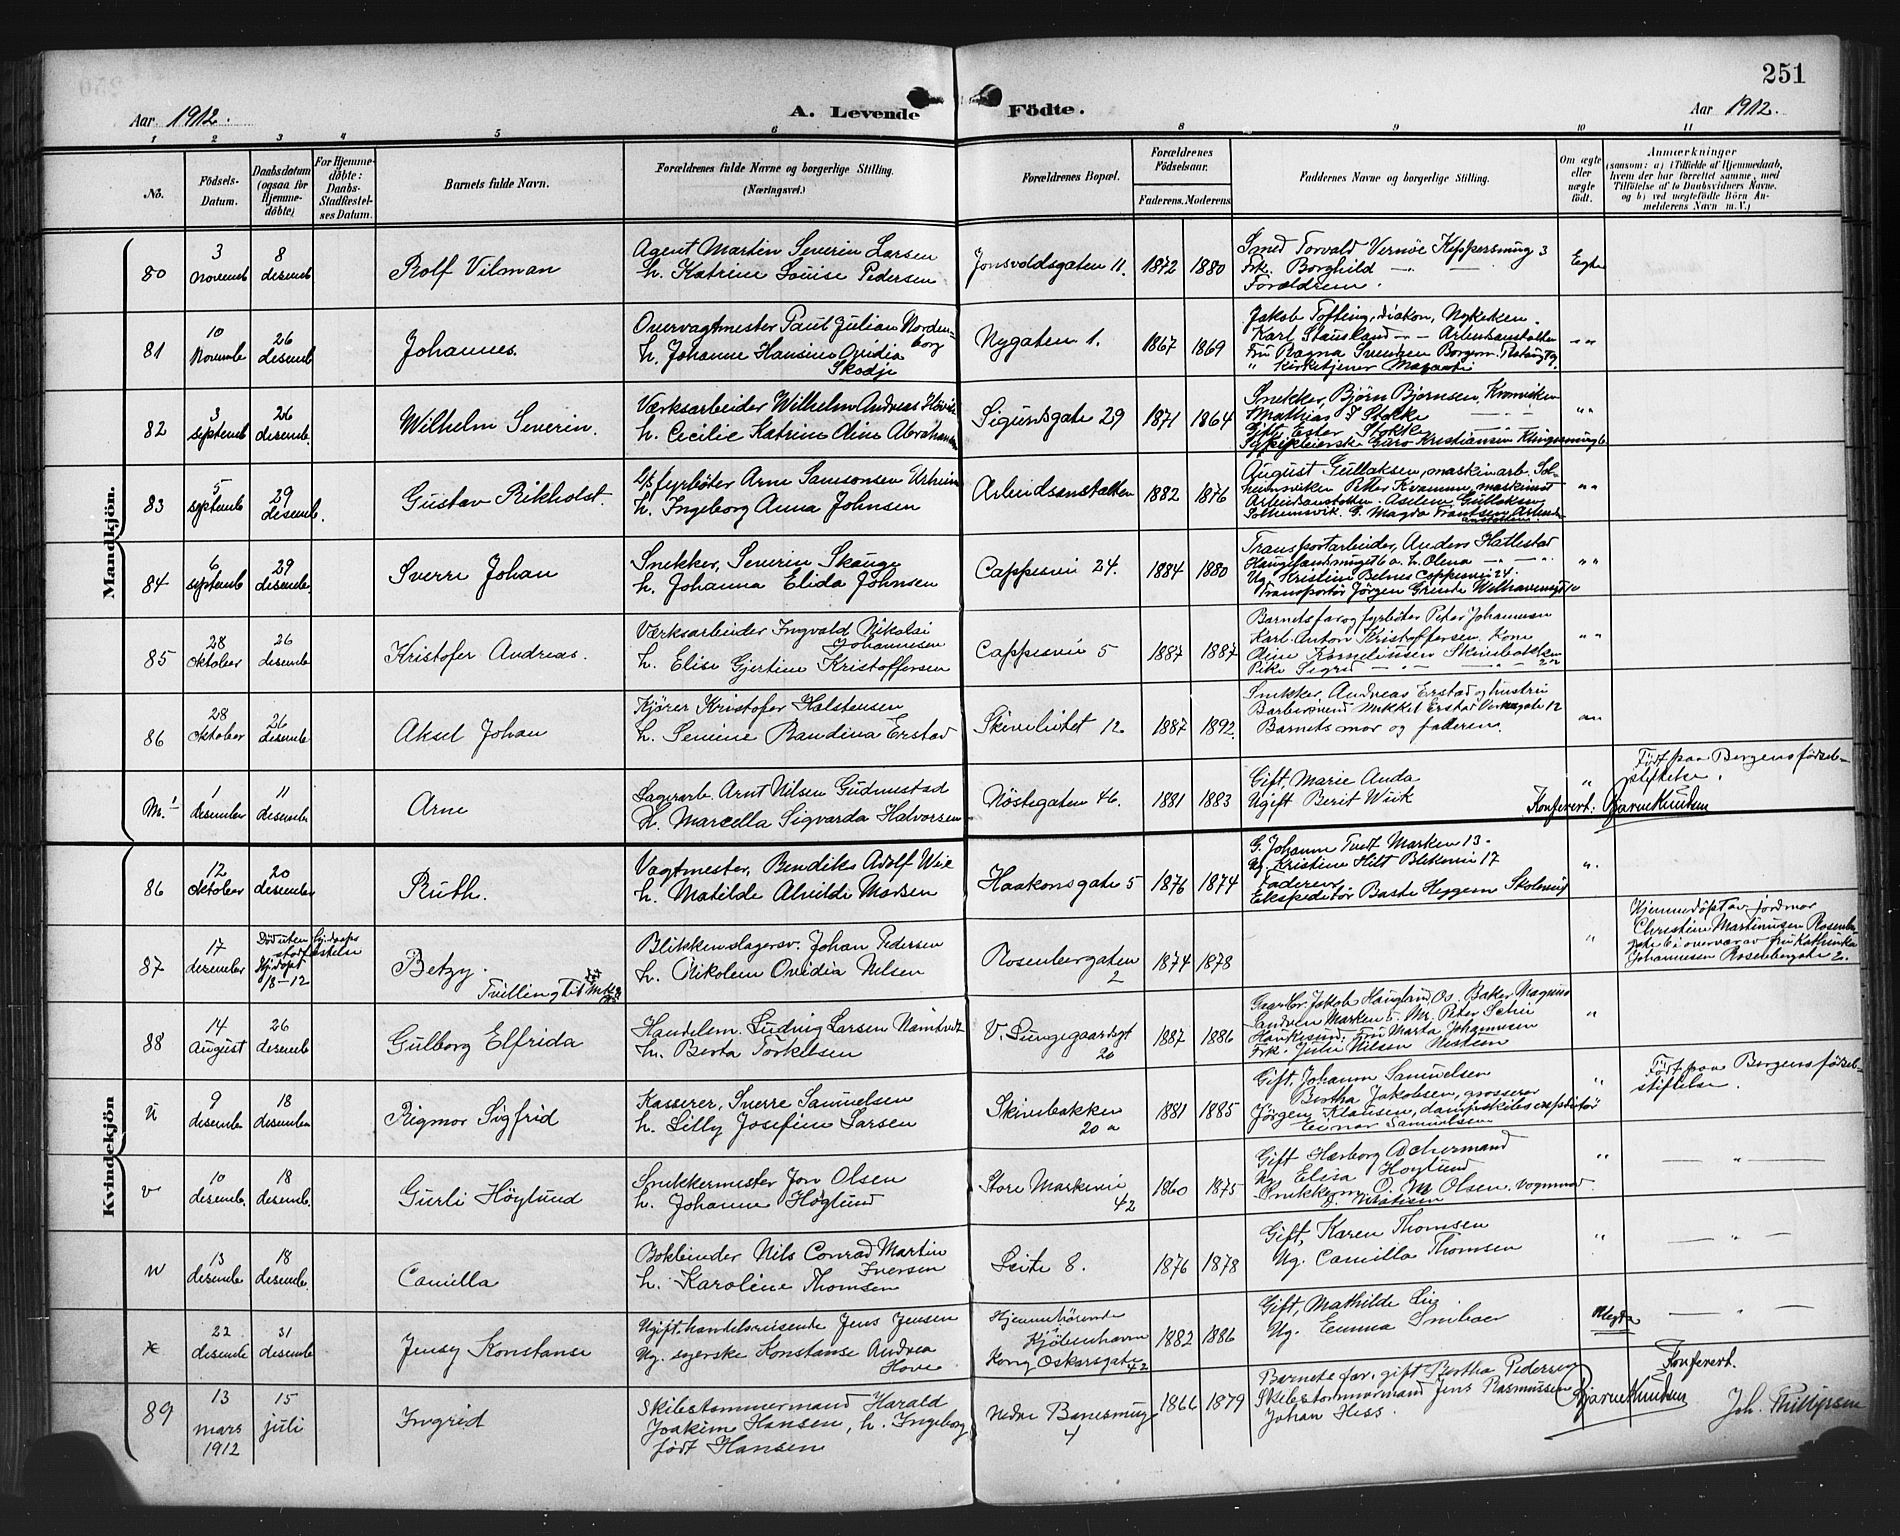 251
Aar 1912.
A. Levende Födte.
Aar 1912.
1 2 3 4 5 6 8 9 10 11
No.
Födsels-
Datum.
Daabsdatum
(ogsaa for
Hjemme-
döbte)
For Hjemme-
döbte:
Daabs-
Stadfæstel-
ses Datum.
Barnets fulde Navn.
Forældrenes fulde Navne og borgerlige Stilling.
(Næringsvei.)
Forældrenes Bopæl.
Forældrenes
Födselsaar.
Faderens. Moderens.
Faddernes Navne og borgerlige Stilling.
Om ægte
eller
uægte
födt.
Anmærkninger
(saasom: a) i Tilfælde af Hjemmedaab,
hvem der har forrettet samme, med
Tilföielse af to Daabsvidners Navne,
og b) ved uægtefödte Börn An-
melderens Navn m. V.)
Mandkjön.
80
3
novemb
8
desemb
Rolf Vilman
Agent Martin Severin Larsen
h. Katrine Louise Pedersen
Jonsvoldsgaten 11.
1872 1880
Smed Torvald Vernöe Kippersmug 3
Frk. Borghild — " —
Forældrene.
Egte
81
10
Novembe
26
desemb
Johannes.
Overvagtmester Paul Julian Norden-
borg
h. Johanne Hansine Ovidia
Skodje
Nygaten 1.
1867 1869
Jakob Tofting, diakon, Nykirken.
Karl Stausland — " — Arbeidsanstalten
Fru Ragna Svendsen Borgerm. Platougt.
" Kirketjener
" "
82
3
septemb
26
desemb.
Wilhelm Severin.
Værksarbeider Wilhelm Andreas
h. Cecilie Katrine Oline Abrahamsen
Sigurdsgate 29
1871 1864
Snekker, Bjørn Bjørnsen, Kronviken
Mathias P Stokke
Gift, Ester Stokke
" "
83
5
septemb
29
desemb.
Gustav Rikholst.
fyrbøter Arne Samsonsen Utheim
h. Ingeborg Anna Johnsen
Arbeidsanstalten
1882 1876
August Gullaksen, maskinarb. Sol-
heimsviken Petter Kvamme, maskinist
Arbeidsanstalten. Aselen Gullaksen
Solheimsvik. G. Magda Frantsen Arbeids-
anstalten.
" "
84
6
septemb
29
desemb.
Sverre Johan
Snekker, Severin Skauge
h. Johanna Elida Johnsen
Cappesvei 24.
1884 1880
Transportarbeider, Anders Hatlestad
Haugelandsmuget 6 a. h. Olena — " —
Ug. Kristine Cappesvei 24.
Transportør Jørgen Grinde
" "
85
28
oktober
26
desemb
Kristofer Andreas.
Værksarbeider Ingvald Nikolai
Johannesen
h. Elise Gjertine Kristoffersen
Cappesvei 5
1887 1887
Barnets far og fyrbøter Peter Johannesen
Karl Anton Kristoffersen. Kone
Oline Korneliussen Skivebakken
20a
Pike Sigrid — " —
" "
86
28
oktober
26
desemb
Aksel Johan
Kjører Kristofer Halstensen
h. Severine Randina Erstad
Skivebakken 12
1887 1892.
Snekker, Andreas Erstad og hustru
Barbersvend Mikkel Erstad 12
Barnets mor og faderen.
" "
M. 1
1
desember
11
desemb.
Arne
Lagerarb. Arnt Nilsen Gudmestad
h. Marcella Sigvarda Halvorsen
Nöstegaten 46.
1881 1883
Gift, Marie Anda
Ugift Berit Wiik
"
Født paa Bergens fødsels-
stiftelse.
Konferert: Bjarne Knudsen
Kvindekjön
86
12
oktober
20
desember
Ruth.
Vagtmester, Bendiks Adolf Wiik
h. Matilde Alvilde Madsen
Haakonsgate 5
1876 1874
G. Johanne Tvedt Marken 13.
Ug. Kristine Hilt Blekevei 17
Faderen
Ekspeditør Baste Heggem
".
87
17
desember
Død uten hj.daaps
stadfæstelse
Hj.døpt
18-12
Betzy.
Tvilling til
Blikkenslagersv. Johan Pedersen
h. Nikolea Ovidia Nilsen
Rosenbergaten
2
1874 1878
"
Hjemmedøpt av jordmor
Christine Martinusen Rosenber-
gate 6 i overvær av fru Kathinka
Johannesen Rosenbergate 2.
88
14
August
26
desemb
Gulborg Elfrida
Handelsm. Ludvig Larsen Namtvedt
h. Berta Torkelsen
V. Lungegaardsgt
20
1887 1886
Gaardbr. Jakob Haugland, Os. Baker Magnus
Andersen Marken 5. Peter Schei
Haukisund, Fru Marta Johannesen
Frk. Julie Nilsen Nesteen
"
U
9
desemb
18
desember
Rigmor Sigfrid
Kasserer, Sverre Samuelsen
h. Lilly Josefine Larsen
Skivebakken
20 a
1881 1885
Gift, Johanne Samuelsen
Bertha Jakobsen, grosserer
Jörgen Klausen, dampskibsexpeditør
Einar Samuelsen
"
Født paa Bergens fødsels-
stiftelse.
V
10
desemb.
18
desemb.
Gurli Höglund
Snekkermester Jon Olsen
h. Johanne Höglund
Store Markevei
42
1860 1875
Gift Herborg Ackermand
Ug. Elisa Hoglund
Snekkerm. O. M. Olsen. vognmand
"
— " —
W
13
desemb
18
desemb.
Camilla
Bokbinder Nils Conrad Martin
Iversen
h. Karoline Thomsen
Leite 8.
1876 1878
Gift, Karen Thomsen
Ug. Camilla Thomsen
"
— " —
X
22
desemb
31
desemb
Jensy Konstanse
Ugift, handelsreisende Jens Jensen
Ug. syerske Konstanse Andrea
Hove
Hjemmehörende
i Kjöbenhavn
Kong Oskarsgate 42
1882 1886
Gift, Mathilde Lie
Ug. Emma
Uegte
— " —
89
13
mars
1912
15
juli
Ingrid
Skibstømmermand Harald
Joakim Hansen, h. Ingeborg
født Hansen
Nedre Banesmug
4
1866 1879
Barnets far, gift Bertha Pedersen
Skibstømmermand Jens Rasmussen
Johan Hess.
Konferert.
Bjarne Knudsen
Joh. Phillipsen